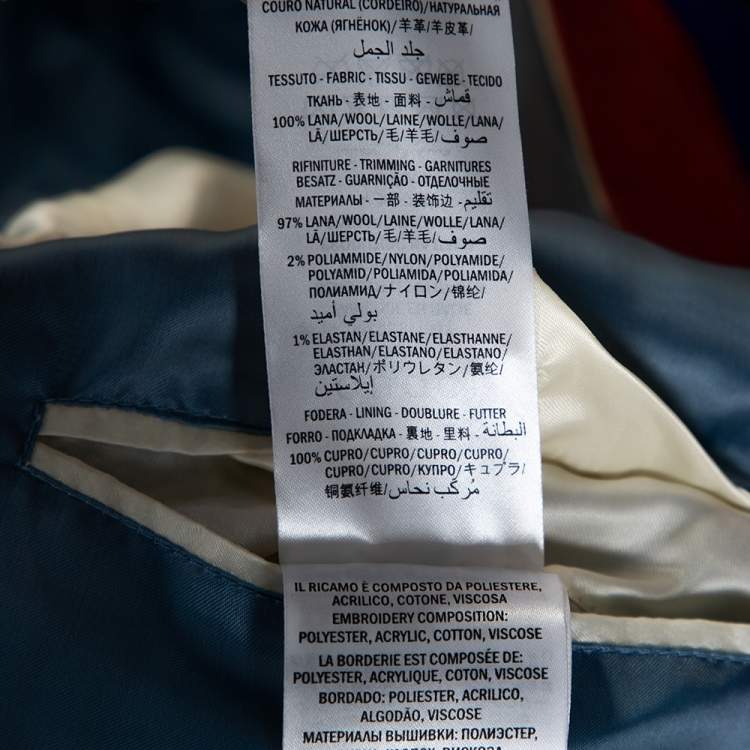 COURO NATURAL (CORDEIRO)/НАТУРАЛЬНАЯ
КОЖА (ЯГНЁНОК)/羊革/羊皮革/
جلد الجمل
TESSUTO - FABRIC - TISSU - GEWEBE - TECIDO
ТКАНЬ - 表地 - 面料 - قماش
100% LANA/WOOL/LAINE/WOLLE/LANA/
LÃ/ШЕРСТЬ/毛/羊毛/صوف
RIFINITURE - TRIMMING - GARNITURES
BESATZ - GUARNIÇÃO - ОТДЕЛОЧНЫЕ
МАТЕРИАЛЫ - 一部 - 装饰边 - تقليم
97% LANA/WOOL/LAINE/WOLLE/LANA/
LÃ/ШЕРСТЬ/毛/羊毛/صوف
2% POLIAMMIDE/NYLON/POLYAMIDE/
POLYAMID/POLIAMIDA/POLIAMIDA/
ПОЛИАМИД/ナイロン/锦纶/
بولي أميد
1% ELASTAN/ELASTANE/ELASTHANNE/
ELASTHAN/ELASTANO/ELASTANO/
ЭЛАСТАН/ポリウレタン/氨纶/
إيلاستين
FODERA - LINING - DOUBLURE - FUTTER
FORRO - ПОДКЛАДКА - 裏地 - 里料 - البطانة
100% CUPRO/CUPRO/CUPRO/CUPRO/
CUPRO/CUPRO/КУПРО/キュプラ/
铜氨纤维/مُركّب نحاس
IL RICAMO È COMPOSTO DA POLIESTERE,
ACRILICO, COTONE, VISCOSA
EMBROIDERY COMPOSITION:
POLYESTER, ACRYLIC, COTTON, VISCOSE
LA BORDERIE EST COMPOSÉE DE:
POLYESTER, ACRYLIQUE, COTON, VISCOSE
BORDADO: POLIESTER, ACRILICO,
ALGODÃO, VISCOSE
МАТЕРИАЛЫ ВЫШИВКИ: ПОЛИЭСТЕР,